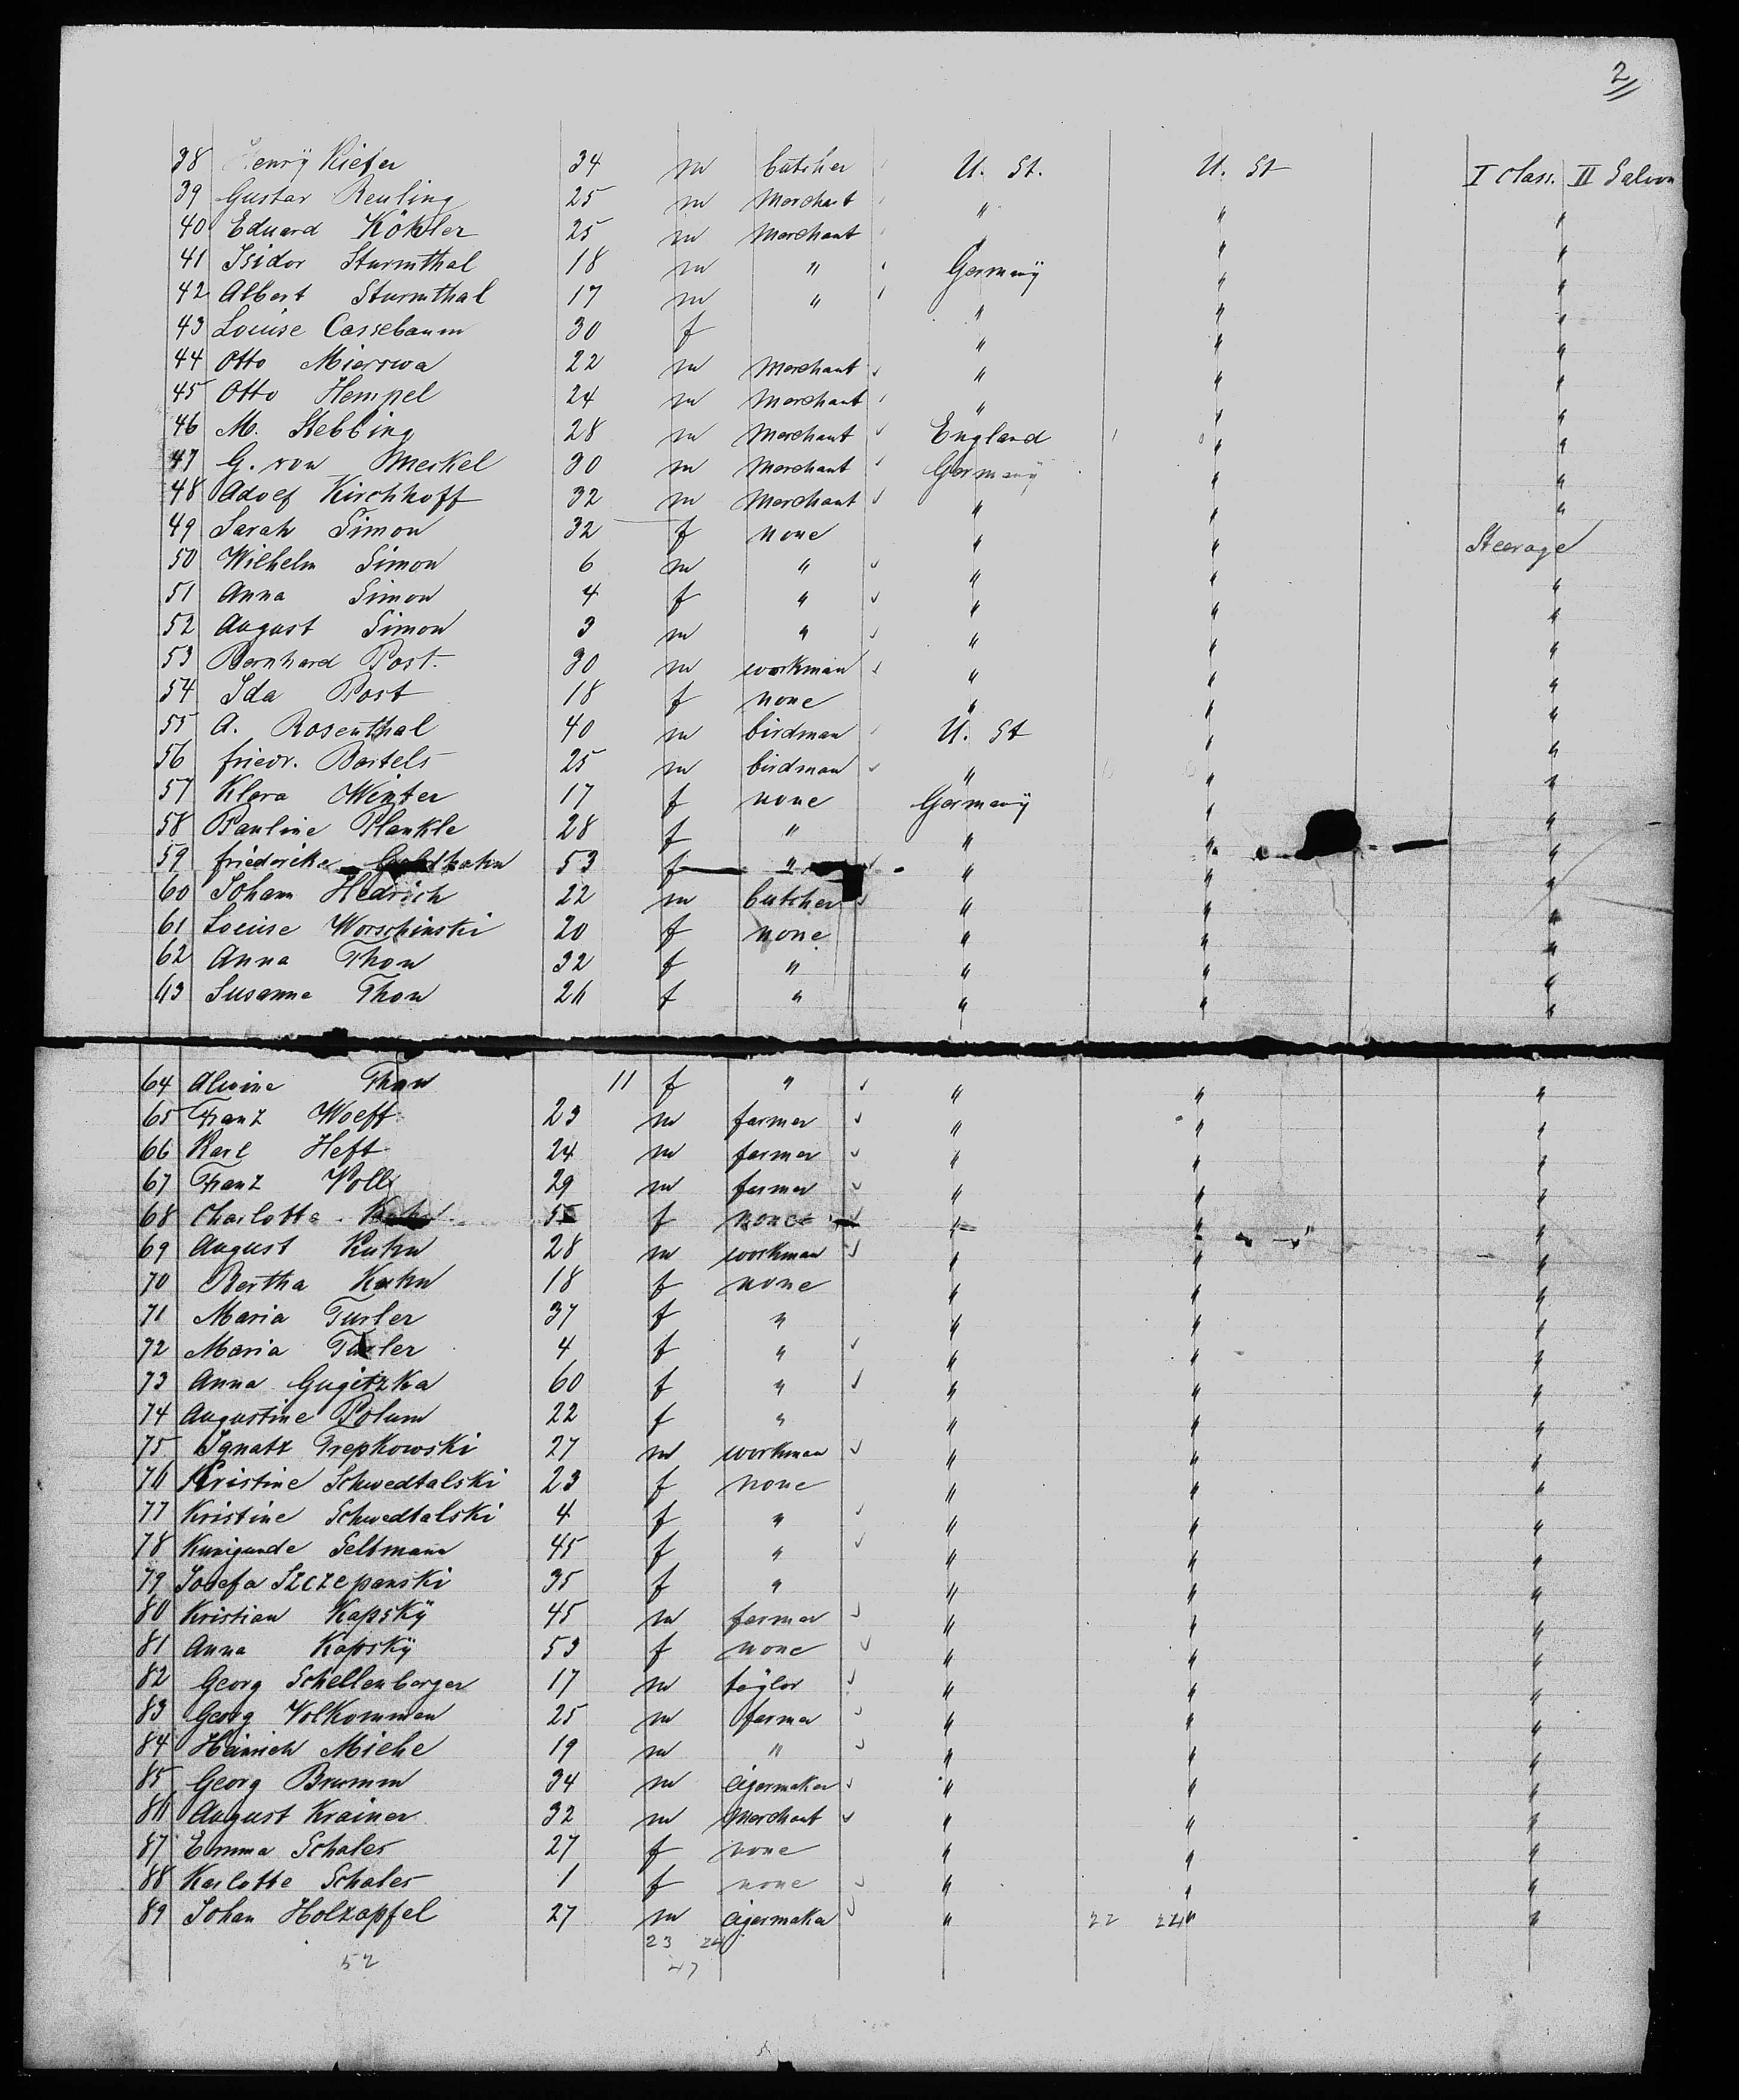 2
38 Henrÿ Kiefer 34 m butcher U. St. U. St I class. II Saloon
39 Gustav Reuling 25 m Merchant " " "
40 Eduard Köhler 25 m Merchant " " "
41 Isidor Sturmthal 18 m " Germanÿ " "
42 Albert Sturmthal 17 m " " " "
43 Louise Cassebaum 30 f " " "
44 Otto Mierswa 22 m Merchant " " "
45 Otto Hempel 24 m Merchant " " "
46 M. Stebbing 28 m Merchant England " "
47 G. von Merkel 30 m Merchant Germanÿ " "
48 Adolf Kirchhoff 32 m Merchant " " "
49 Sarah Simon 32 f none " " Steerage
50 Wilhelm Simon 6 m " " " "
51 Anna Simon 4 f " " " "
52 August Simon 3 m " " " "
53 Bernhard Post. 30 m workman " " "
54 Ida Post 18 f none " " "
55 A. Rosenthal 40 m birdman U. St " "
56 friedr. Bartels 25 m birdman " " "
57 Klara Winter 17 f none Germanÿ " "
58 Pauline Plankle 28 f " " " "
59 friedericke 53 f " " " "
60 Johann Hedrich 22 m butcher " " "
61 Louise Worschinski 20 f none " " "
62 Anna Thon 32 f " " " "
63 Susanna Thon 26 f " " " "
64 Alwine Thon 11 f " " " "
65 Franz Woeft 23 m farmer " " "
66 Karl Heft 24 m farmer " " "
67 Franz Voll 29 m farmer " " "
68 Charlotte f none " " "
69 August Kuhn 28 m workman " " "
70 Bertha Kuhn 18 f none " " "
71 Maria Turler 37 f " " " "
72 Maria Turler 4 f " " " "
73 Anna Gugitzka 60 f " " " "
74 Augustine Polum 22 f " " " "
75 Ignatz Trepkowski 27 m workman " " "
76 Kristine Schwedtalski 23 f none " " "
77 Kristine Schwedtalski 4 f " " " "
78 Kunigunde Seltmann 45 f " " " "
79 Josefa Szczepanski 35 f " " " "
80 Kristian Kapskÿ 45 m farmer " " "
81 Anna Kapskÿ 53 f none " " "
82 Georg Schellenberger 17 m taÿlor " " "
83 Georg Volkommen 25 m farmer " " "
84 Heinrich Miehe 19 m " " " "
85 Georg Brumm 34 m cigarmaker " " "
86 August Krainer 32 m Merchant " " "
87 Emma Schales 27 f none " " "
88 Karlotte Schales 1 f none " " "
89 Johan Holzapfel 27 m cigarmaker " 22 22 " "
23 24
52 47